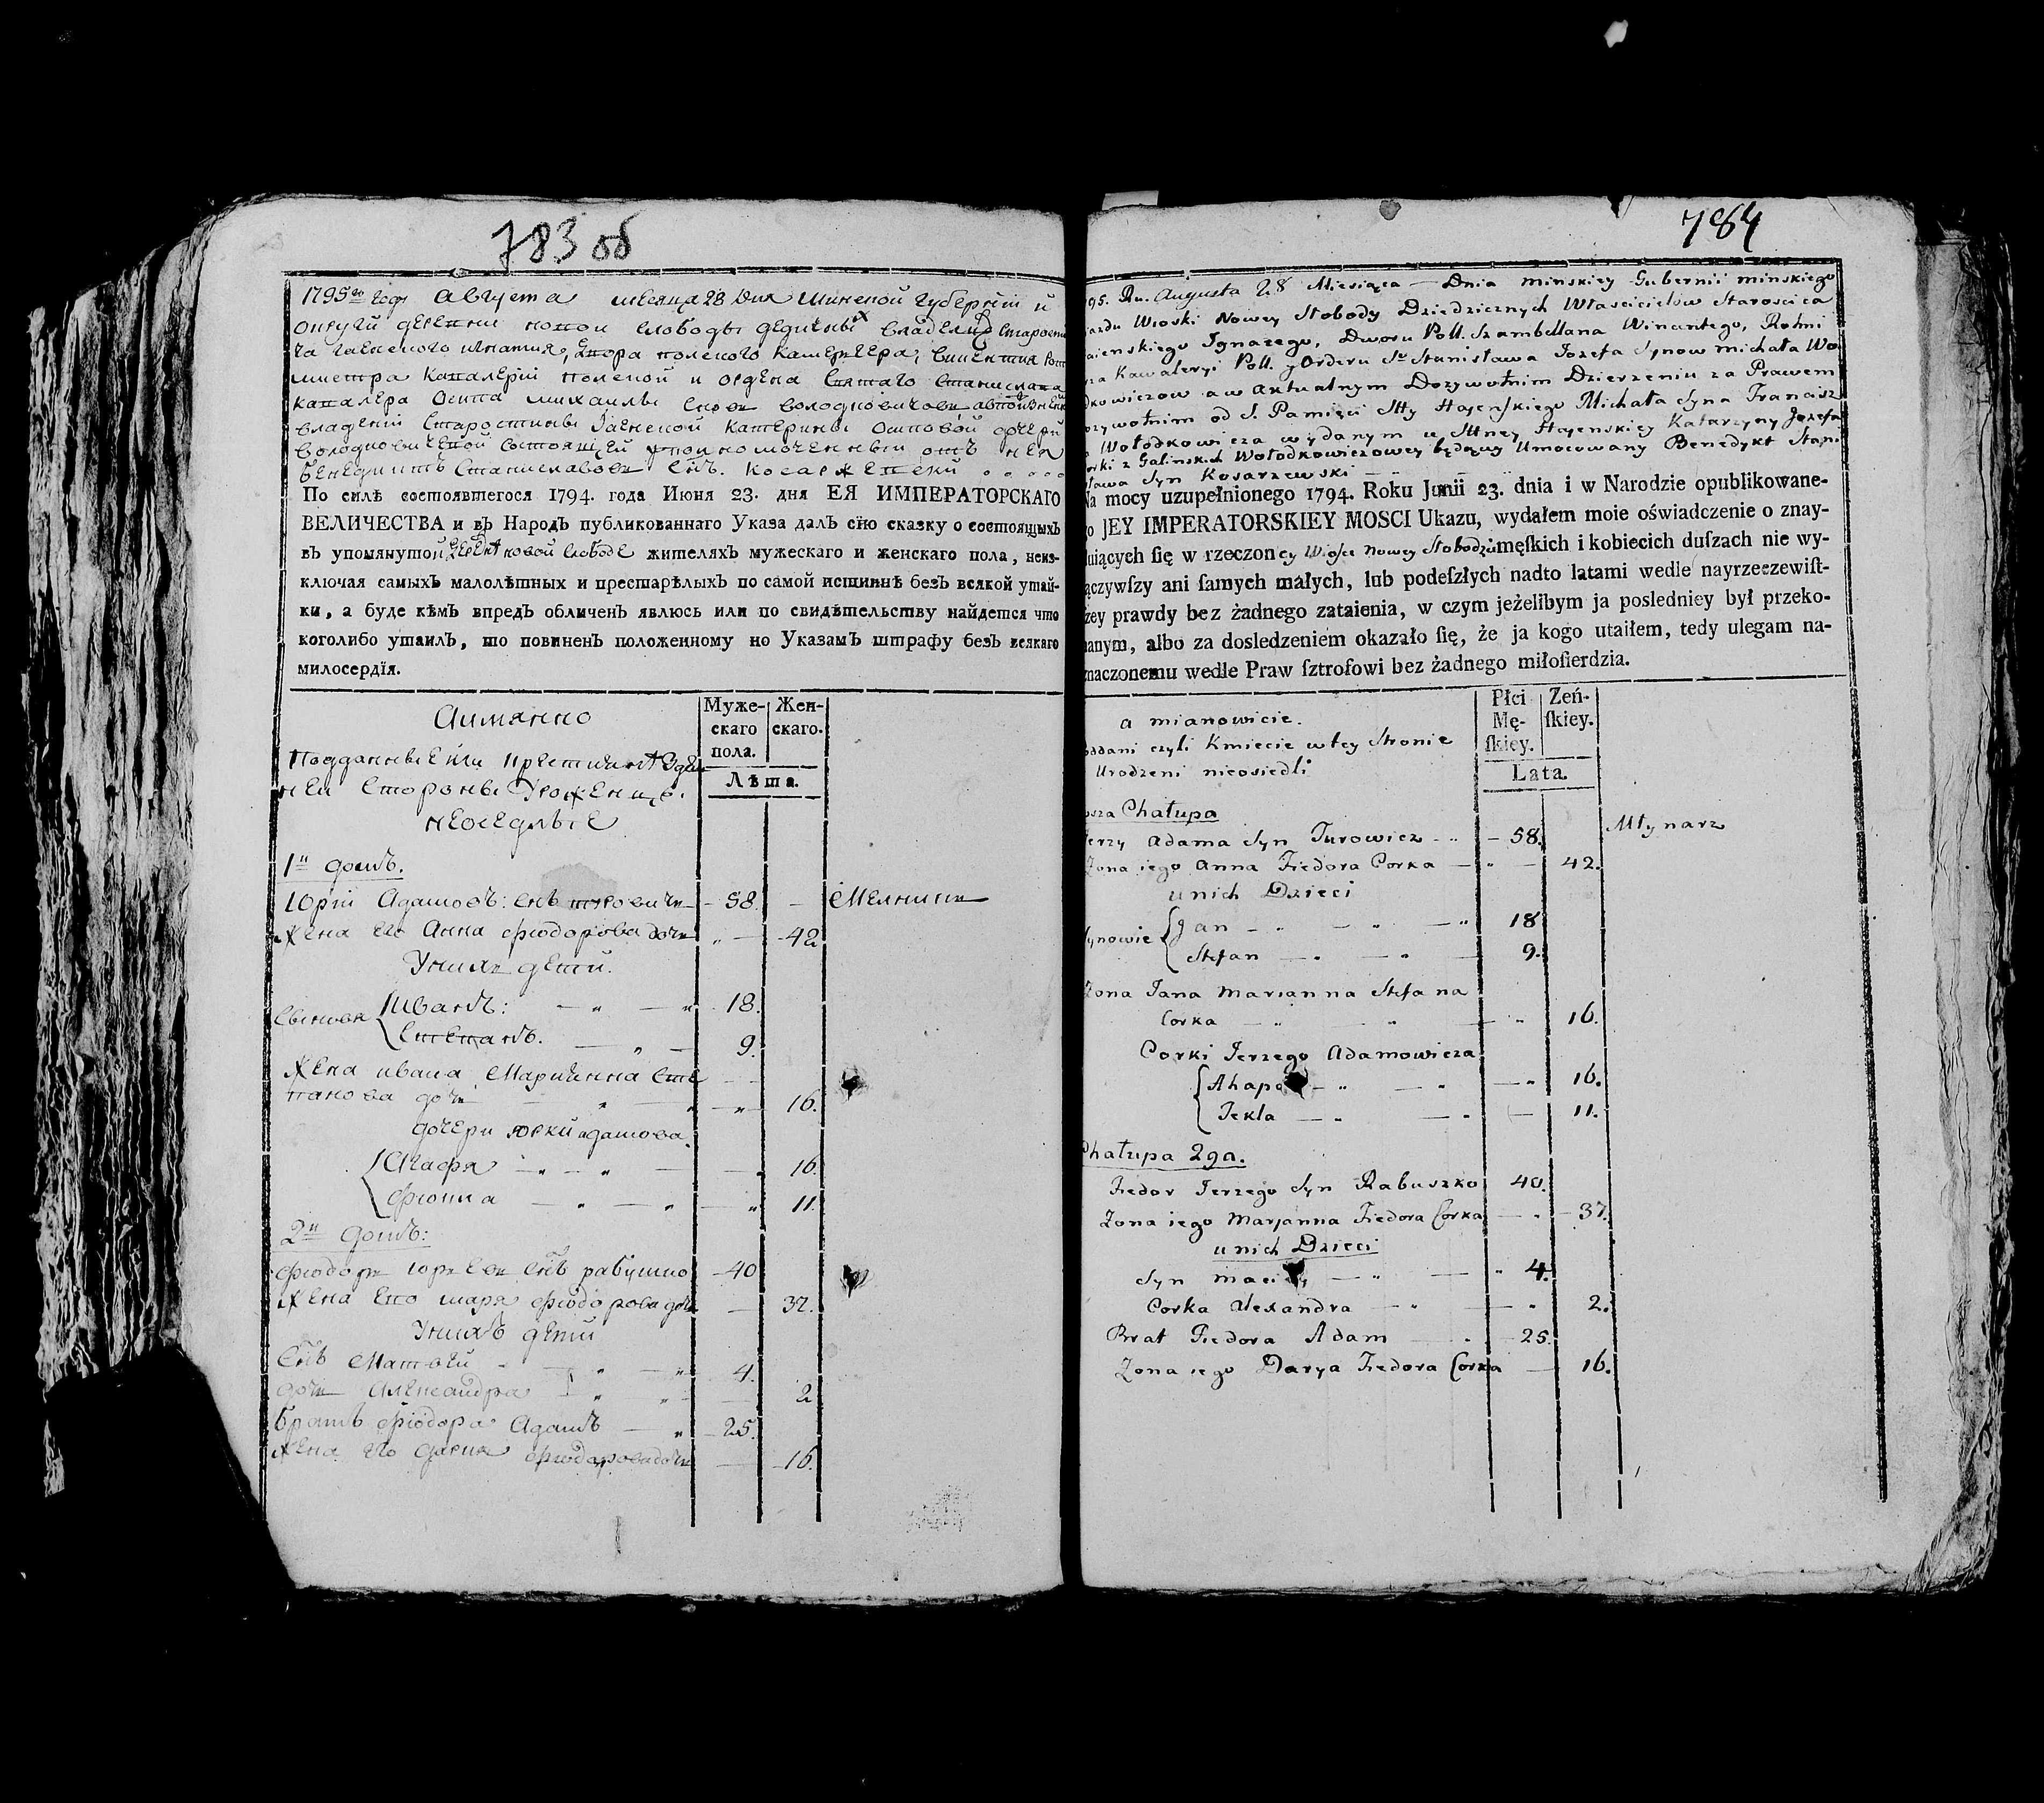 783 об
1795го году Августа месяца 28 дня минской губернии и
округи деревни новой слободы дедичных владелцов старости
ча гаенского игнатия, двора полского камергера, винцентия рот
мистра кавалерии полской и ордена святаго станислава
кавалера осипа михайлы сынов володковичов,
владении старостины гаенской катерины осиповой дочери
володковичевой состоящей уполномоченный от нея
бенедикт станиславов снъ косаржевский
По силѣ состоявшегося 1794. года Июня 23. дня ЕЯ ИМПЕРАТОРСКАГО
ВЕЛИЧЕСТВА и въ Народъ публикованнаго Указа далъ сїю сказку о состоящыхъ
въ упомянутой деревне новой слободе жителяхъ мужескаго и женскаго пола, неиз-
ключая самыхъ малолѣтныхъ и престарѣлыхъ по самой истиннѣ безъ всякой утай-
ки, а буде кѣмъ впредь обличенъ явлюсь или по свидѣтельству найдется что
коголибо утаилъ, то повиненъ положенному по Указамъ штрафу безъ всякаго
милосердїя.
Аимянно
Муже-
скаго
пола.
Жен-
скаго.
Лѣта.
Подданные или крестияне здеш
ней стороны уроженцы
неоседлые
1й домъ.
Юрий Адамовъ: снъ туровичъ 58. Мелникъ
Жена его Анна фиодорова дочь 42
У них дети.
сыновя
Иванъ: 18.
Степанъ. 9.
Жена ивана Мариянна Сте
панова дочь 16.
дочери юрки адамова.
Агафя 16.
фиокла 11.
2й домъ:
фиодор юрьев снъ рабушко 40
Жена его маря фиодорова дочь 37.
У нихъ дети
снъ Матвей 4.
дочь Александра 2
братъ фиодора Адамъ 25.
Жена его дария фиодорова дочь 16.
784
95. Ru. Augusta 28 Miesiąca Dnia Minskiey Gubernii minskiego
azdu Wioski Nowey Słobody Dziedzicznych Własciciełow Staroscica
aienskiego Ignacego, Dworu Poll. Szambellana Wincentego, Rotmi
za Kawaleryi Poll. y Orderu St Stanisława Jozefa Synow michała Wo
dkowiczow a w aktualnym Dozywotnim Dzierzeniu za Prawem
ozywotnim od S. Pamięci Stty Hajenskiego Michała Syna Francisz
Wołodkowicza wydanym u Sttney Hajenskiey Katarzyny Jozefa
orki z Galinskich Wołodkowiczowey będący Umocowany Benedykt Stani
sława Syn Kosarzewski
Na mocy uzupełnionego 1794. Roku Junii 23. dnia i w Narodzie opublikowane-
o JEY IMPERATORSKIEY MOSCI Ukazu, wydałem moie oświadczenie o znay-
duiących ſię w rzeczoney Wiosce Nowey Słobodzie męſkich i kobiecich duſzach nie wy-
ączywſzy ani ſamych małych, lub podeſzłych nadto latami wedle nayrzeczewiſt-
zey prawdy bez żadnego zataienia, w czym jeżelibym ja posledniey był przeko-
nanym, albo za dosledzeniem okazało ſię, że ja kogo utaiłem, tedy ulegam na-
znaczonemu wedle Praw ſztrofowi bez żadnego miłoſierdzia.
a mianowicie.
Płci
Mę-
ſkiey.
Zeń-
ſkiey.
Lata.
oddani czyli Kmiecie w tey Stronie
Urodzeni nieosiedli
sza Chałupa
Jerzy Adama Syn Turowicz 58. Młynarz
Zona iego Anna Fiedora Corka 42.
u nich Dzieci
Synowie
Jan 18
Stefan 9.
Zona Jana Marianna Stefana
Corka 16.
Corki Jerzego Adamowicza
Ahapa 16.
Tekla 11.
Chałupa 2ga.
Fiedor Jerzego Syn Rabuszko 40.
Zona iego Marjanna Fiedora Corka 37.
u nich Dzieci
Syn Maciey 4.
Corka Alexandra 2.
Brat Fiedora Adam 25.
Zona iego Darya Fiedora Corka 16.